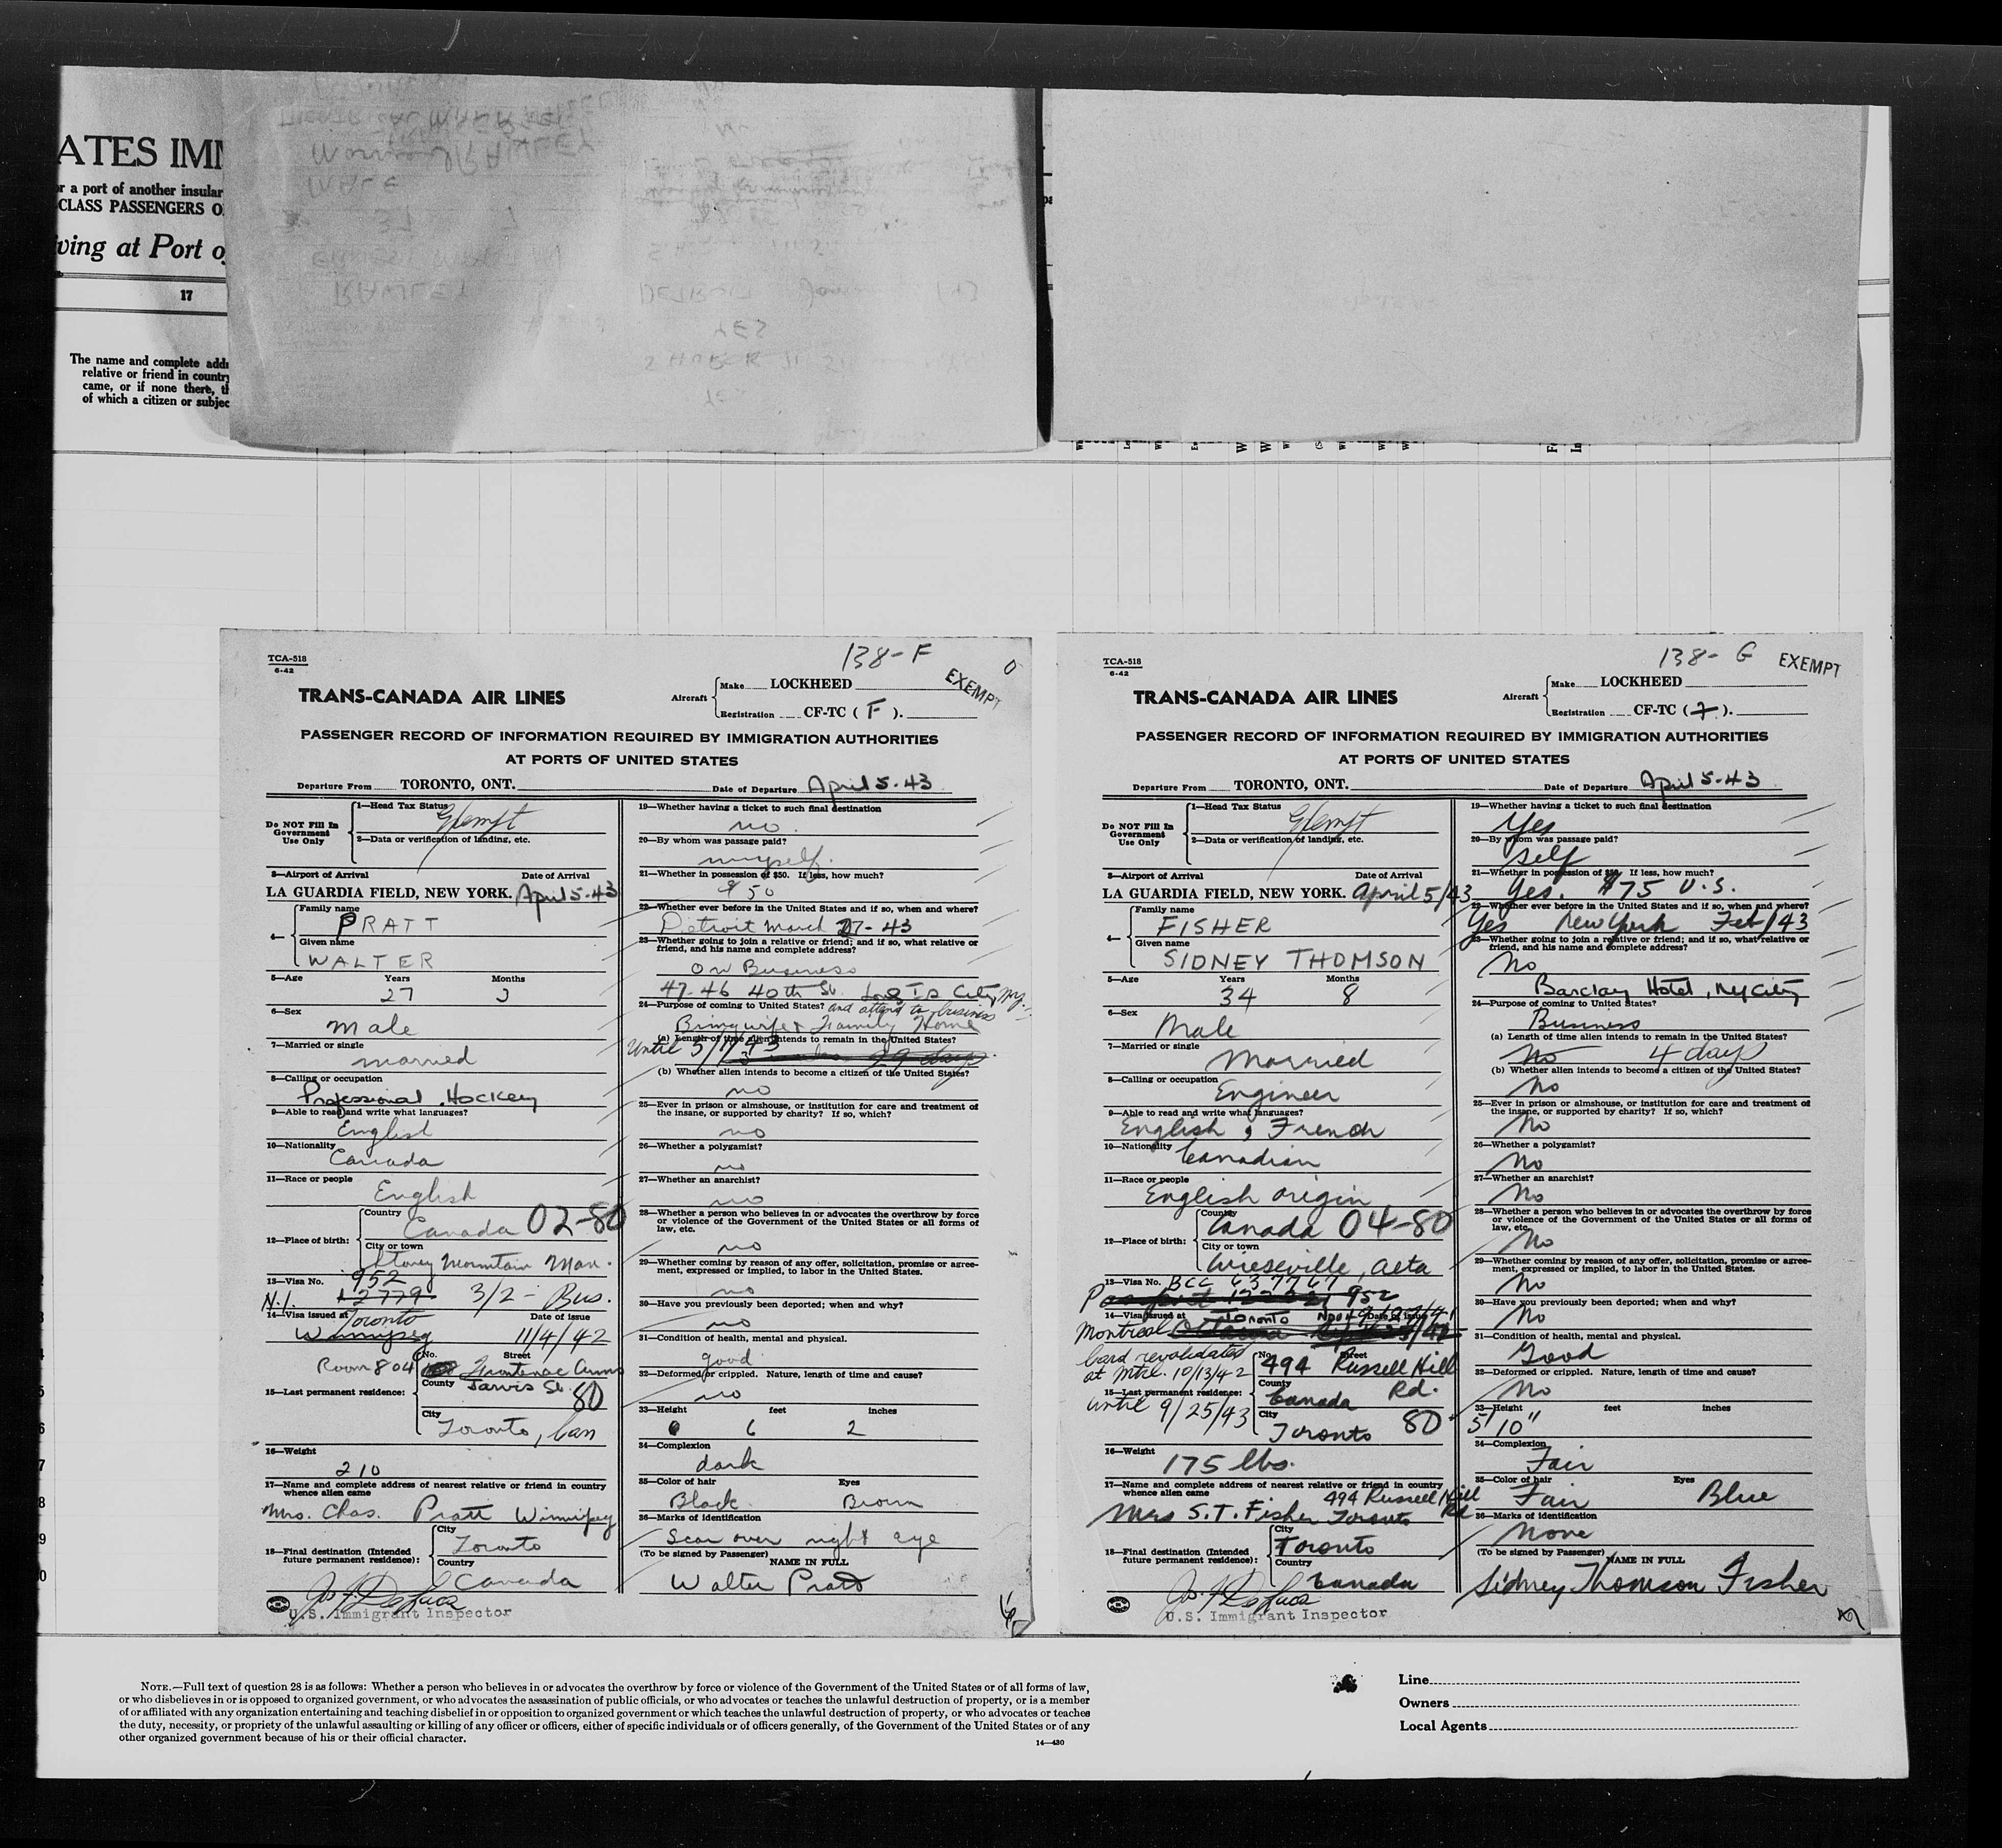 ATES IMM
or a port of another insular
CLASS PASSENGERS O
iving at Port o
17
The name and complete addr
relative or friend in country
came, or if none there, th
of which a citizen or subjec
138-F
TCA-518
6-42
EXEMPT
TRANS-CANADA AIR LINES
Aircraft
Make LOCKHEED
Registration CF-TC ( F ).
PASSENGER RECORD OF INFORMATION REQUIRED BY IMMIGRATION AUTHORITIES
AT PORTS OF UNITED STATES
Departure From TORONTO, ONT. Date of Departure April 5-43
Do NOT Fill In
Government
Use Only
1—Head Tax Status
Exempt
2—Data or verification of landing, etc.
3—Airport of Arrival Date of Arrival
LA GUARDIA FIELD, NEW YORK. April 5-43
4—
Family name
PRATT
Given name
WALTER
5—Age Years Months
27
6—Sex
Male
7—Married or single
married
8—Calling or occupation
Professional Hockey
9—Able to read and write what languages?
English
10—Nationality
Canada
11—Race or people
English
12—Place of birth:
Country
Canada 02-80
City or town
Stoney Mountain Man.
13—Visa No. 952
N.I. 12779 3/2 - Bus.
14—Visa issued at Toronto Date of issue
Winnipeg 11/4/42
15—Last permanent residence:
No. Street
Room 804 Frontenac Arms
County Jarvis St. 80
City
Toronto, Can
16—Weight
210
17—Name and complete address of nearest relative or friend in country
whence alien came
Mrs. Chas. Pratt Winnipeg
18—Final destination (Intended
future permanent residence):
City
Toronto
Country
Canada
U.S. Immigrant Inspector
19—Whether having a ticket to such final destination
no
20—By whom was passage paid?
myself.
21—Whether in possession of $50. If less, how much?
$50
22—Whether ever before in the United States and if so, when and where?
Detroit March 27-43
23—Whether going to join a relative or friend; and if so, what relative or
friend, and his name and complete address?
on Business
47-46 40th St. Long Is City, NY.
24—Purpose of coming to United States? and attend to business
Bring wife & Family Home
(a) Length of time alien intends to remain in the United States?
Until 5/1/43 29 days
(b) Whether alien intends to become a citizen of the United States?
no
25—Ever in prison or almshouse, or institution for care and treatment of
the insane, or supported by charity? If so, which?
no
26—Whether a polygamist?
no
27—Whether an anarchist?
no
28—Whether a person who believes in or advocates the overthrow by force
or violence of the Government of the United States or all forms of
law, etc.
no
29—Whether coming by reason of any offer, solicitation, promise or agree-
ment, expressed or implied, to labor in the United States.
no
30—Have you previously been deported; when and why?
no
31—Condition of health, mental and physical.
good
32—Deformed or crippled. Nature, length of time and cause?
no
33—Height feet inches
6 2
34—Complexion
dark
35—Color of hair Eyes
Black Brown
36—Marks of identification
Scar over right eye
(To be signed by Passenger) NAME IN FULL
Walter Pratt
138-G
TCA-518
6-42
EXEMPT
TRANS-CANADA AIR LINES
Aircraft
Make LOCKHEED
Registration CF-TC ( 7 ).
PASSENGER RECORD OF INFORMATION REQUIRED BY IMMIGRATION AUTHORITIES
AT PORTS OF UNITED STATES
Departure From TORONTO, ONT. Date of Departure April 5-43
Do NOT Fill In
Government
Use Only
1—Head Tax Status
Exempt
2—Data or verification of landing, etc.
3—Airport of Arrival Date of Arrival
LA GUARDIA FIELD, NEW YORK. April 5/43
4—
Family name
FISHER
Given name
SIDNEY THOMSON
5—Age Years Months
34 8
6—Sex
Male
7—Married or single
Married
8—Calling or occupation
Engineer
9—Able to read and write what languages?
English, French
10—Nationality
Canadian
11—Race or people
English origin
12—Place of birth:
Country
Canada 04-80
City or town
Wieseville, Alta
13—Visa No. BCC 637767
952
14—Visa issued at Toronto Date of issue
Montreal
Card revalidated
at Mtrl. 10/13/42
until 9/25/43
15—Last permanent residence:
No. Street
494 Russell Hill
Rd.
County
Canada
City
Toronto 80
16—Weight
175 lbs.
17—Name and complete address of nearest relative or friend in country
whence alien came 494 Russell Hill
Mrs S.T. Fisher Toronto Rd
18—Final destination (Intended
future permanent residence):
City
Toronto
Country
Canada
U.S. Immigrant Inspector
19—Whether having a ticket to such final destination
Yes
20—By whom was passage paid?
Self
21—Whether in possession of $50. If less, how much?
Yes. $75 U.S.
22—Whether ever before in the United States and if so, when and where?
Yes New York Feb/43
23—Whether going to join a relative or friend; and if so, what relative or
friend, and his name and complete address?
No
Barclay Hotel, NY City
24—Purpose of coming to United States?
Business
(a) Length of time alien intends to remain in the United States?
No 4 days
(b) Whether alien intends to become a citizen of the United States?
No
25—Ever in prison or almshouse, or institution for care and treatment of
the insane, or supported by charity? If so, which?
No
26—Whether a polygamist?
No
27—Whether an anarchist?
No
28—Whether a person who believes in or advocates the overthrow by force
or violence of the Government of the United States or all forms of
law, etc.
No
29—Whether coming by reason of any offer, solicitation, promise or agree-
ment, expressed or implied, to labor in the United States.
No
30—Have you previously been deported; when and why?
No
31—Condition of health, mental and physical.
Good
32—Deformed or crippled. Nature, length of time and cause?
No
33—Height feet inches
5'10"
34—Complexion
Fair
35—Color of hair Eyes
Fair Blue
36—Marks of identification
None
(To be signed by Passenger) NAME IN FULL
Sidney Thomson Fisher
NOTE.—Full text of question 28 is as follows: Whether a person who believes in or advocates the overthrow by force or violence of the Government of the United States or of all forms of law,
or who disbelieves in or is opposed to organized government, or who advocates the assassination of public officials, or who advocates or teaches the unlawful destruction of property, or is a member
of or affiliated with any organization entertaining and teaching disbelief in or opposition to organized government or which teaches the unlawful destruction of property, or who advocates or teaches
the duty, necessity, or propriety of the unlawful assaulting or killing of any officer or officers, either of specific individuals or of officers generally, of the Government of the United States or of any
other organized government because of his or their official character.
14—430
Line
Owners
Local Agents